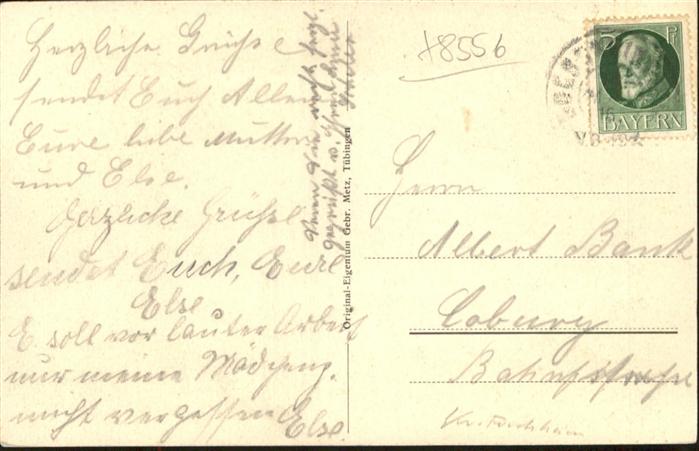 Herzliche Grüße
sendet Euch Allen
Eure liebe Mutter
und Else.
Herzliche Grüße
sendet Euch, Eure
Else
E. soll vor lauter Arbeit
nur meine
nicht vergessen Else.
Seien Sie recht herzl.
gegrüßt v. Ihrem
Original-Eigentum Gebr. Metz, Tübingen
+8556
5 Pf
BAYERN
Herrn
Albert Bank
Coburg
Bahnhofstraße